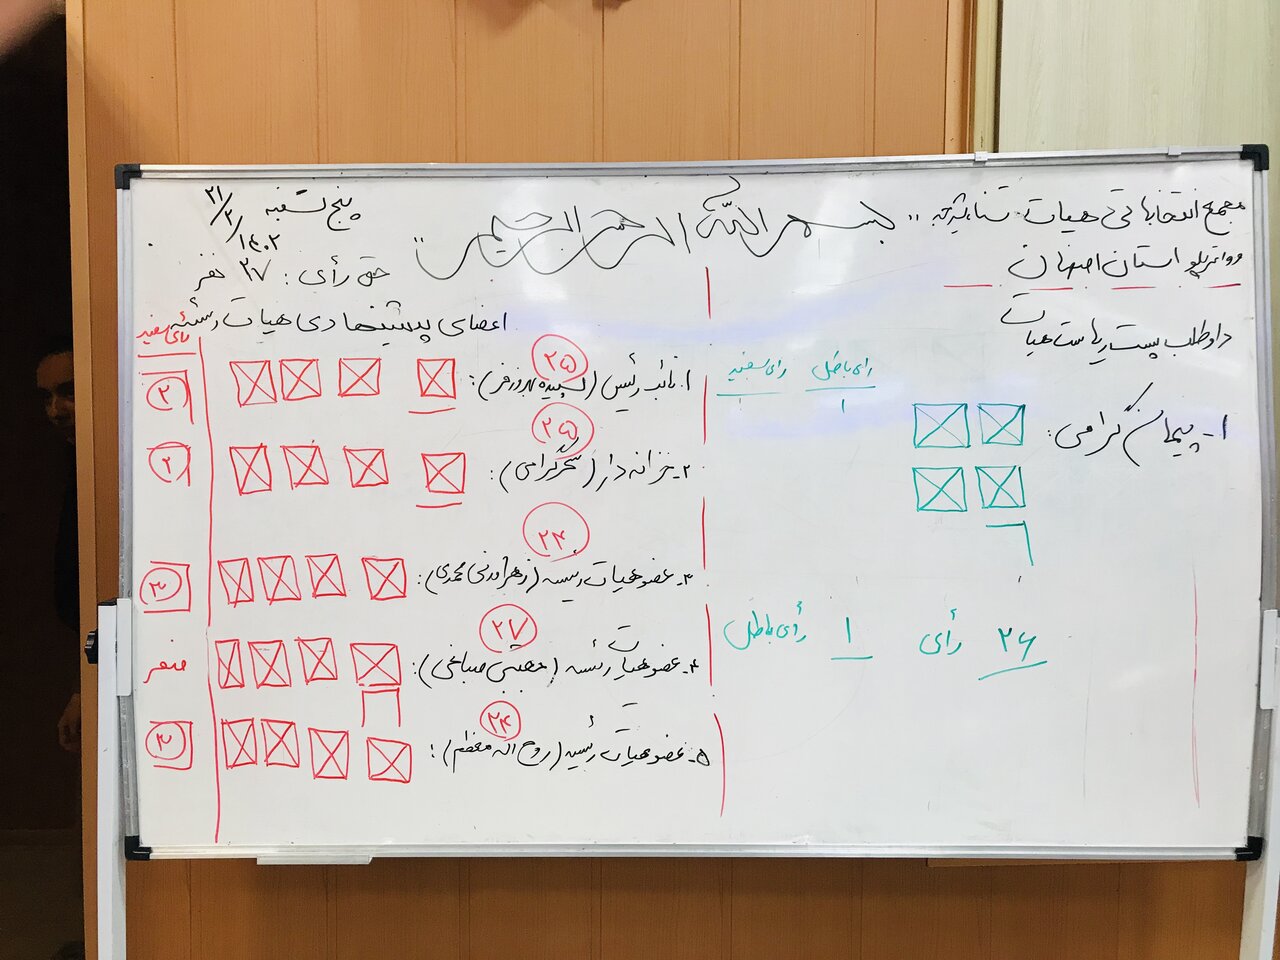 بسم الله الرحمن الرحیم
مجمع انتخاباتی هیات شنا، شیرجه
و واترپلو استان اصفهان
داوطلب پست ریاست هیات
۱- پیمان گرامی:
رأی باطل رأی سفید
۱ ۱
۲۶ رأی ۱ رأی باطل
پنج شنبه ۲۱/۲/۱۴۰۲
حق رأی: ۲۷ نفر
اعضای پیشنهادی هیات رئیسه
رأی سفید
۱. نائب رئیس (سپیده بهروزفر): ۲۵ ۲
۲- خزانه دار (سحر گرامی): ۲۵ ۲
۳- عضو هیات رئیسه (زهرا محمدی): ۲۴ ۳
۴- عضو هیات رئیسه (مجتبی صباغی): ۲۷ صفر
۵- عضو هیات رئیسه (روح اله معظم): ۲۴ ۳